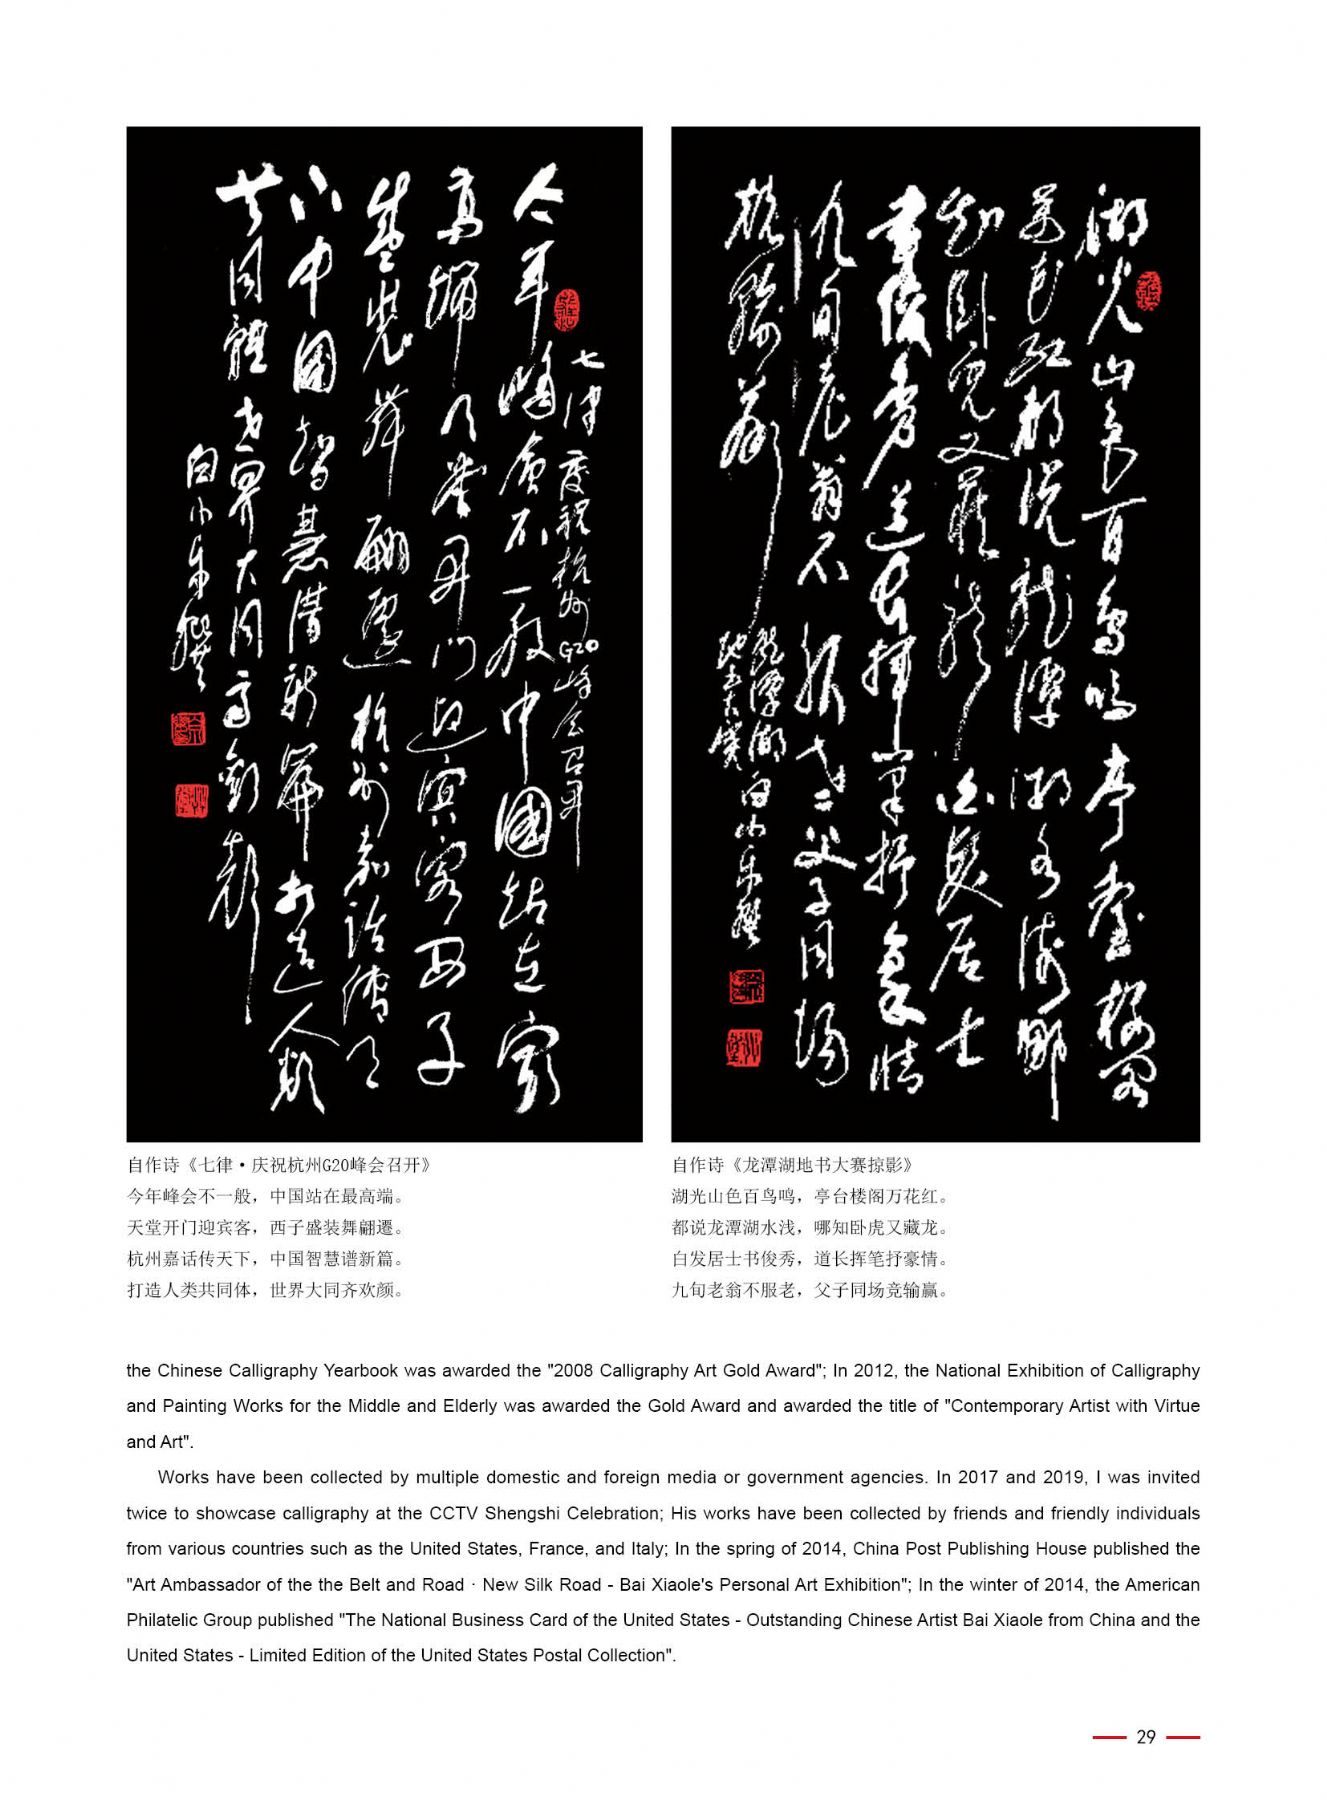 今年峰会不一般中国站在最
高端天堂开门迎宾客西子
盛装舞翩遷杭州嘉话傳天
下中國智慧谱新篇打造人類
共同體世界大同齐歓颜
七律庆祝杭州G20峰会召开
白小乐撰
湖光山色百鸟鸣亭台楼阁
万花红都说龙潭湖水浅哪
知卧虎又藏龙白发居士
书俊秀道长挥笔抒豪情
九旬老翁不服老父子同场
竞输赢
龙潭湖
地书大赛
白小乐撰
自作诗《七律·庆祝杭州G20峰会召开》
今年峰会不一般，中国站在最高端。
天堂开门迎宾客，西子盛装舞翩遷。
杭州嘉话传天下，中国智慧谱新篇。
打造人类共同体，世界大同齐欢颜。
自作诗《龙潭湖地书大赛掠影》
湖光山色百鸟鸣，亭台楼阁万花红。
都说龙潭湖水浅，哪知卧虎又藏龙。
白发居士书俊秀，道长挥笔抒豪情。
九旬老翁不服老，父子同场竞输赢。
the Chinese Calligraphy Yearbook was awarded the "2008 Calligraphy Art Gold Award"; In 2012, the National Exhibition of Calligraphy
and Painting Works for the Middle and Elderly was awarded the Gold Award and awarded the title of "Contemporary Artist with Virtue
and Art".
Works have been collected by multiple domestic and foreign media or government agencies. In 2017 and 2019, I was invited
twice to showcase calligraphy at the CCTV Shengshi Celebration; His works have been collected by friends and friendly individuals
from various countries such as the United States, France, and Italy; In the spring of 2014, China Post Publishing House published the
"Art Ambassador of the the Belt and Road · New Silk Road - Bai Xiaole's Personal Art Exhibition"; In the winter of 2014, the American
Philatelic Group published "The National Business Card of the United States - Outstanding Chinese Artist Bai Xiaole from China and the
United States - Limited Edition of the United States Postal Collection".
29